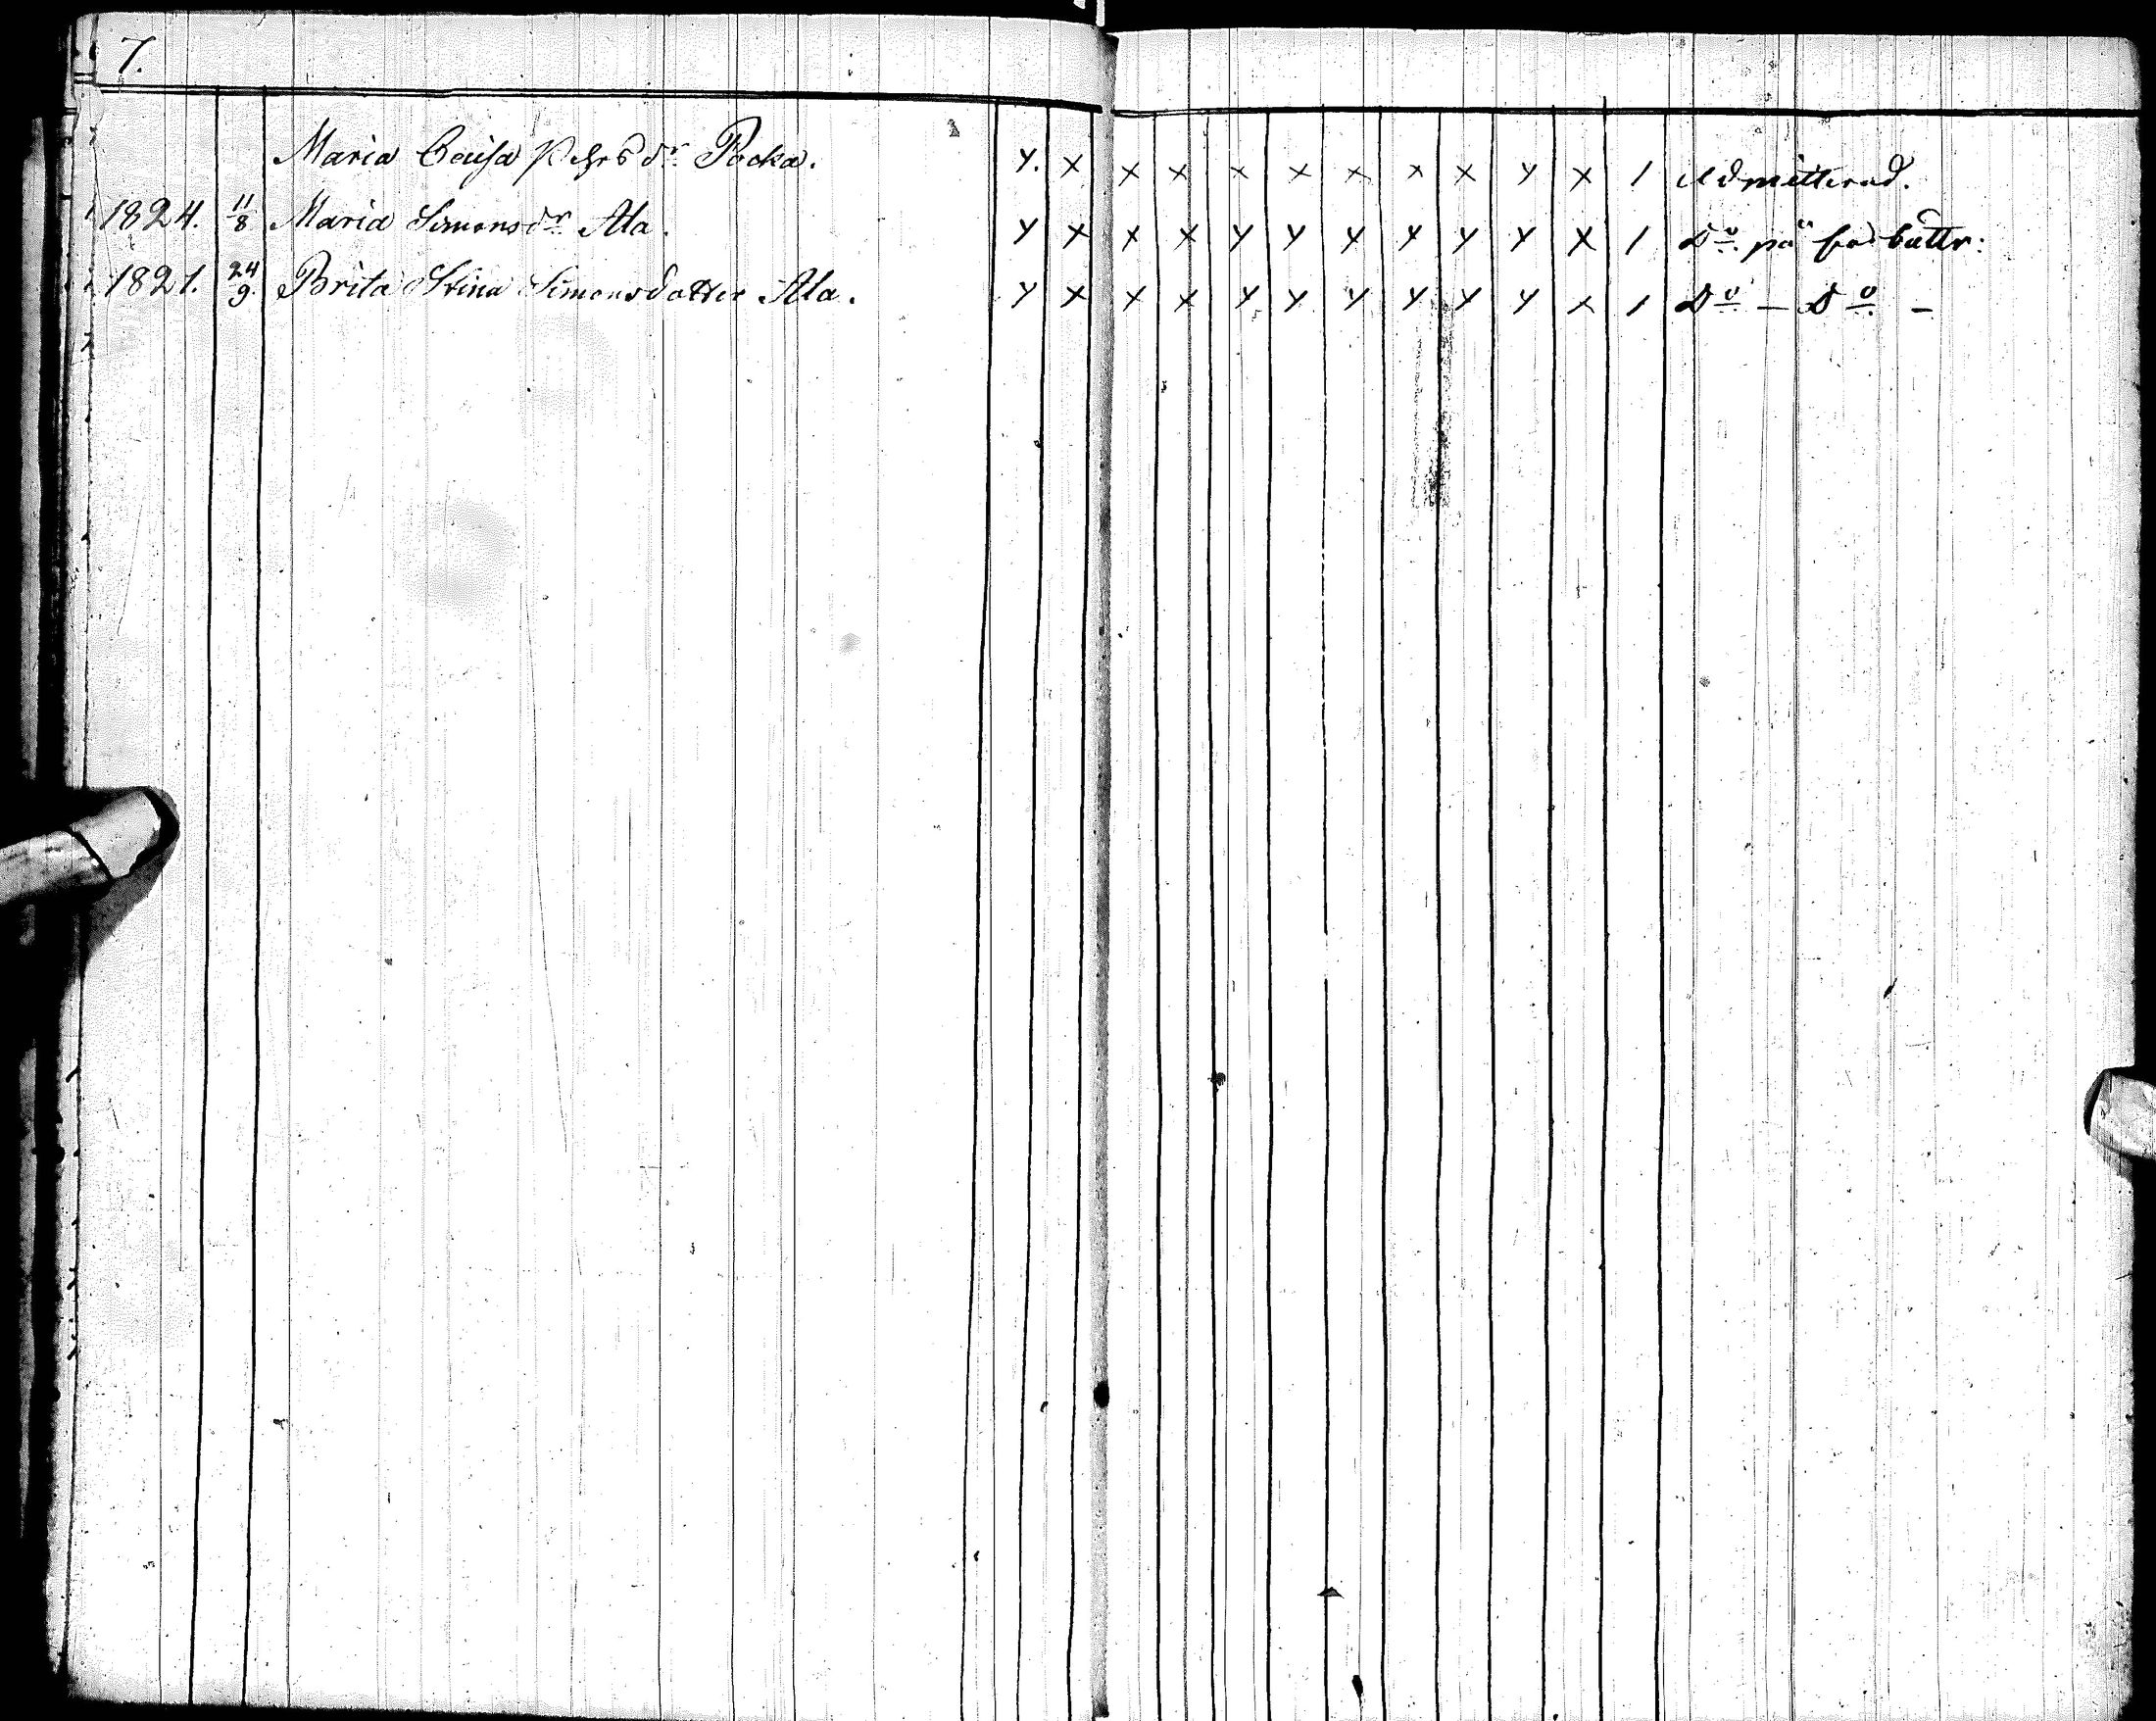 7.
Maria Caisa Pehrs dr. Pocka. y. x x x x x x x x y x 1 Admitterad.
1824. 11/8 Maria Simons dr. Ala. y x x x y y y y y y x 1 Do. på förbättr:
1821. 24/9. Brita Stina Simonsdotter Ala. y x x x y y y y y y x 1 Do. — Do. —